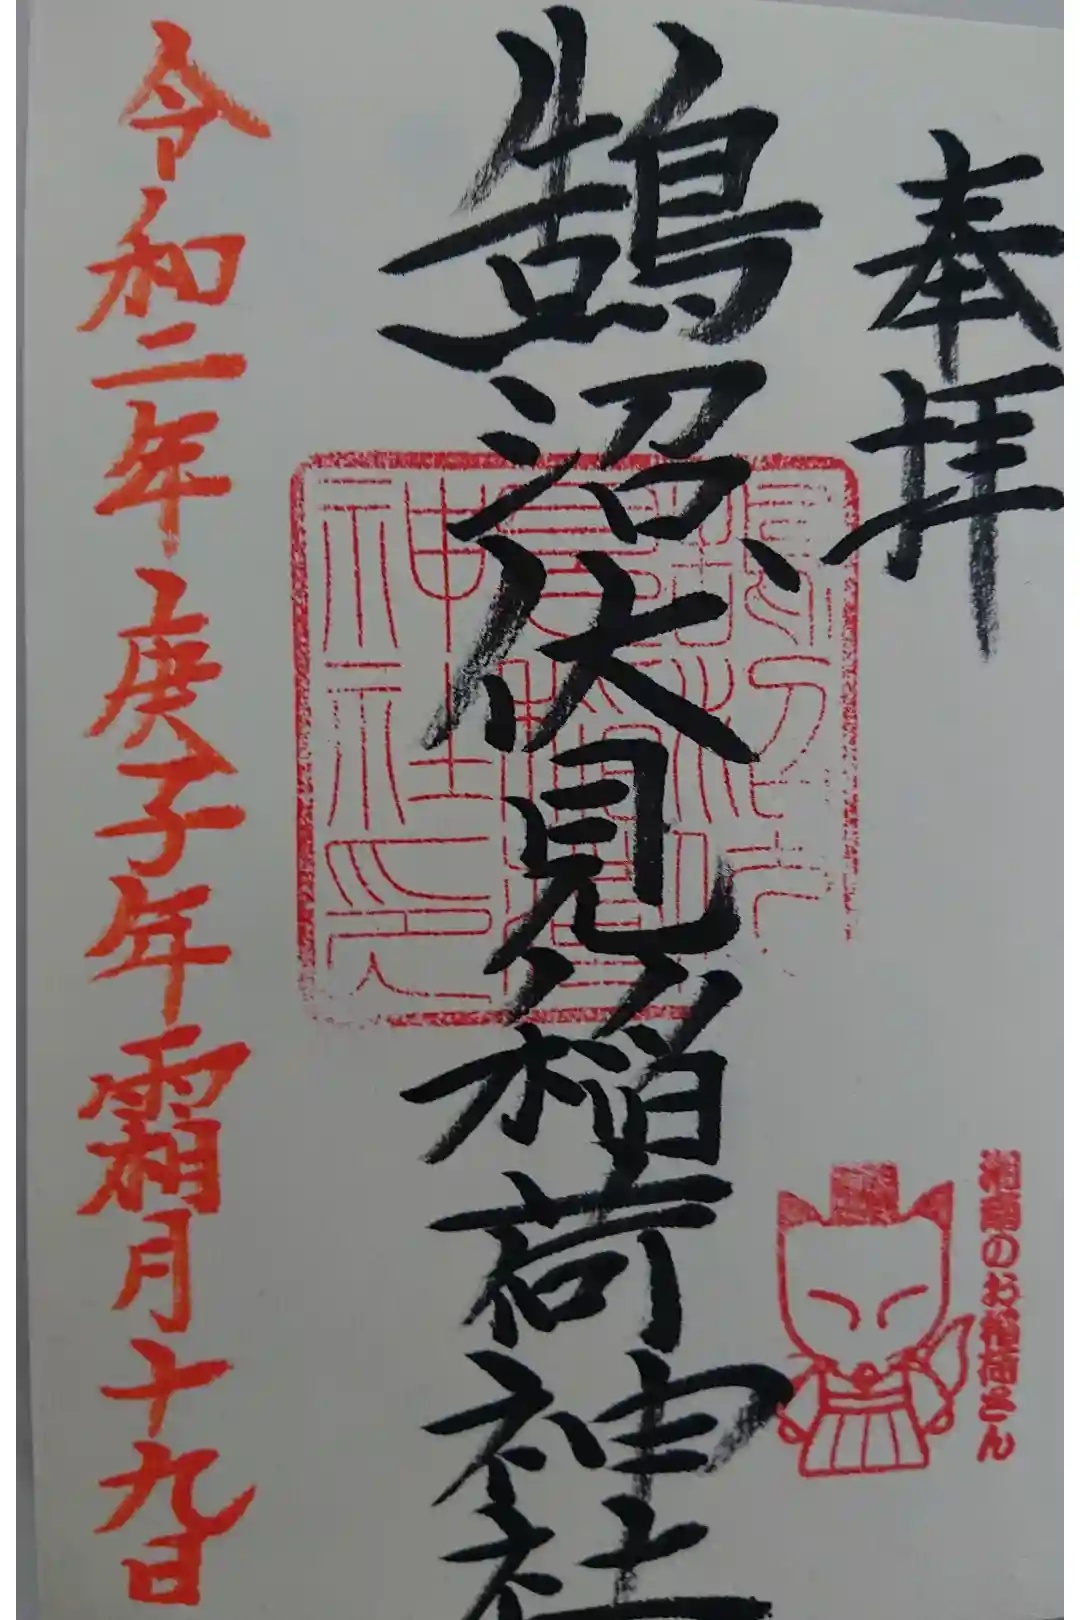 奉拝
鵠沼伏見稲荷神社
令和二年庚子年霜月十九日
湘南のお稲荷さん
鵠沼伏見稲荷神社印